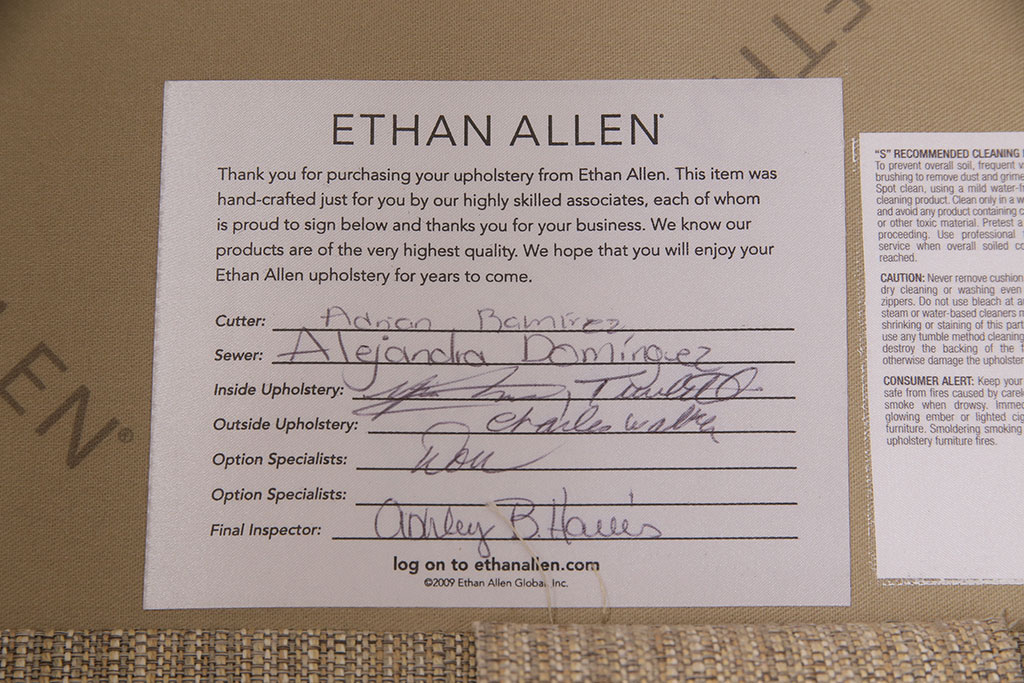 ETH
ETHAN ALLEN®
Thank you for purchasing your upholstery from Ethan Allen. This item was
hand-crafted just for you by our highly skilled associates, each of whom
is proud to sign below and thanks you for your business. We know our
products are of the very highest quality. We hope that you will enjoy your
Ethan Allen upholstery for years to come.
Cutter: Adrian Ramirez
Sewer: Alejandra Domínguez
Inside Upholstery:
Outside Upholstery: Charles Walker
Option Specialists: Don
Option Specialists:
Final Inspector: Ashley B. Harris
log on to ethanallen.com
©2009 Ethan Allen Global, Inc.
EN®
"S" RECOMMENDED CLEANING
To prevent overall soil, frequent
brushing to remove dust and grime
Spot clean, using a mild
cleaning product. Clean only in a
and avoid any product containing
or other toxic material. Pretest a
proceeding. Use professional
service when overall soiled
reached.
CAUTION: Never remove cushion
dry cleaning or washing even
zippers. Do not use bleach at
steam or water-based cleaners
shrinking or staining of this
use any tumble method cleaning
destroy the backing of the
otherwise damage the
CONSUMER ALERT: Keep your
safe from fires caused by
smoke when drowsy.
glowing ember or lighted
furniture. Smoldering smoking
upholstery furniture fires.